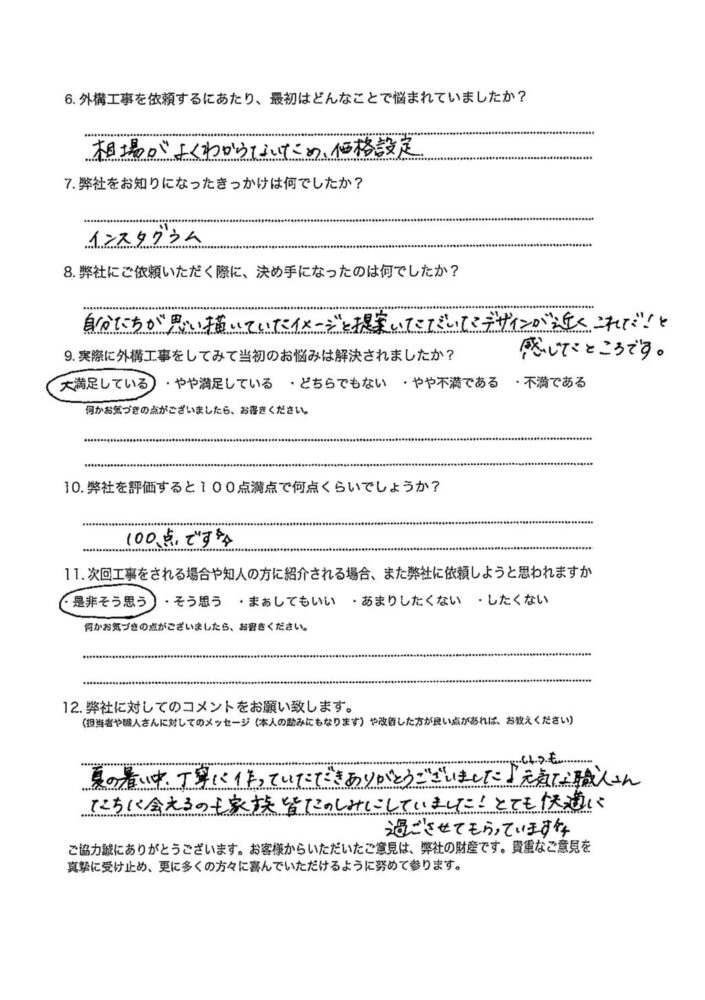 6. 外構工事を依頼するにあたり、最初はどんなことで悩まれていましたか？
相場がよくわからないため、価格設定
7. 弊社をお知りになったきっかけは何でしたか？
インスタグラム
8. 弊社にご依頼いただく際に、決め手になったのは何でしたか？
自分たちが思い描いていたイメージと提案いただいたデザインが近く これだ!と
感じたところです。
9. 実際に外構工事をしてみて当初のお悩みは解決されましたか？
大満足している ・やや満足している ・どちらでもない ・やや不満である ・不満である
何かお気づきの点がございましたら、お書きください。
10. 弊社を評価すると１００点満点で何点くらいでしょうか？
100点です
11. 次回工事をされる場合や知人の方に紹介される場合、また弊社に依頼しようと思われますか
・是非そう思う ・そう思う ・まぁしてもいい ・あまりしたくない ・したくない
何かお気づきの点がございましたら、お書きください。
12. 弊社に対してのコメントをお願い致します。
（担当者や職人さんに対してのメッセージ（本人の励みにもなります）や改善した方が良い点があれば、お教えください）
夏の暑い中、丁寧に作っていただきありがとうございました♪いつも元気な職人さん
たちに会えるのも家族皆たのしみにしていました! とても快適に
過ごさせてもらっています
ご協力誠にありがとうございます。お客様からいただいたご意見は、弊社の財産です。貴重なご意見を
真摯に受け止め、更に多くの方々に喜んでいただけるように努めて参ります。